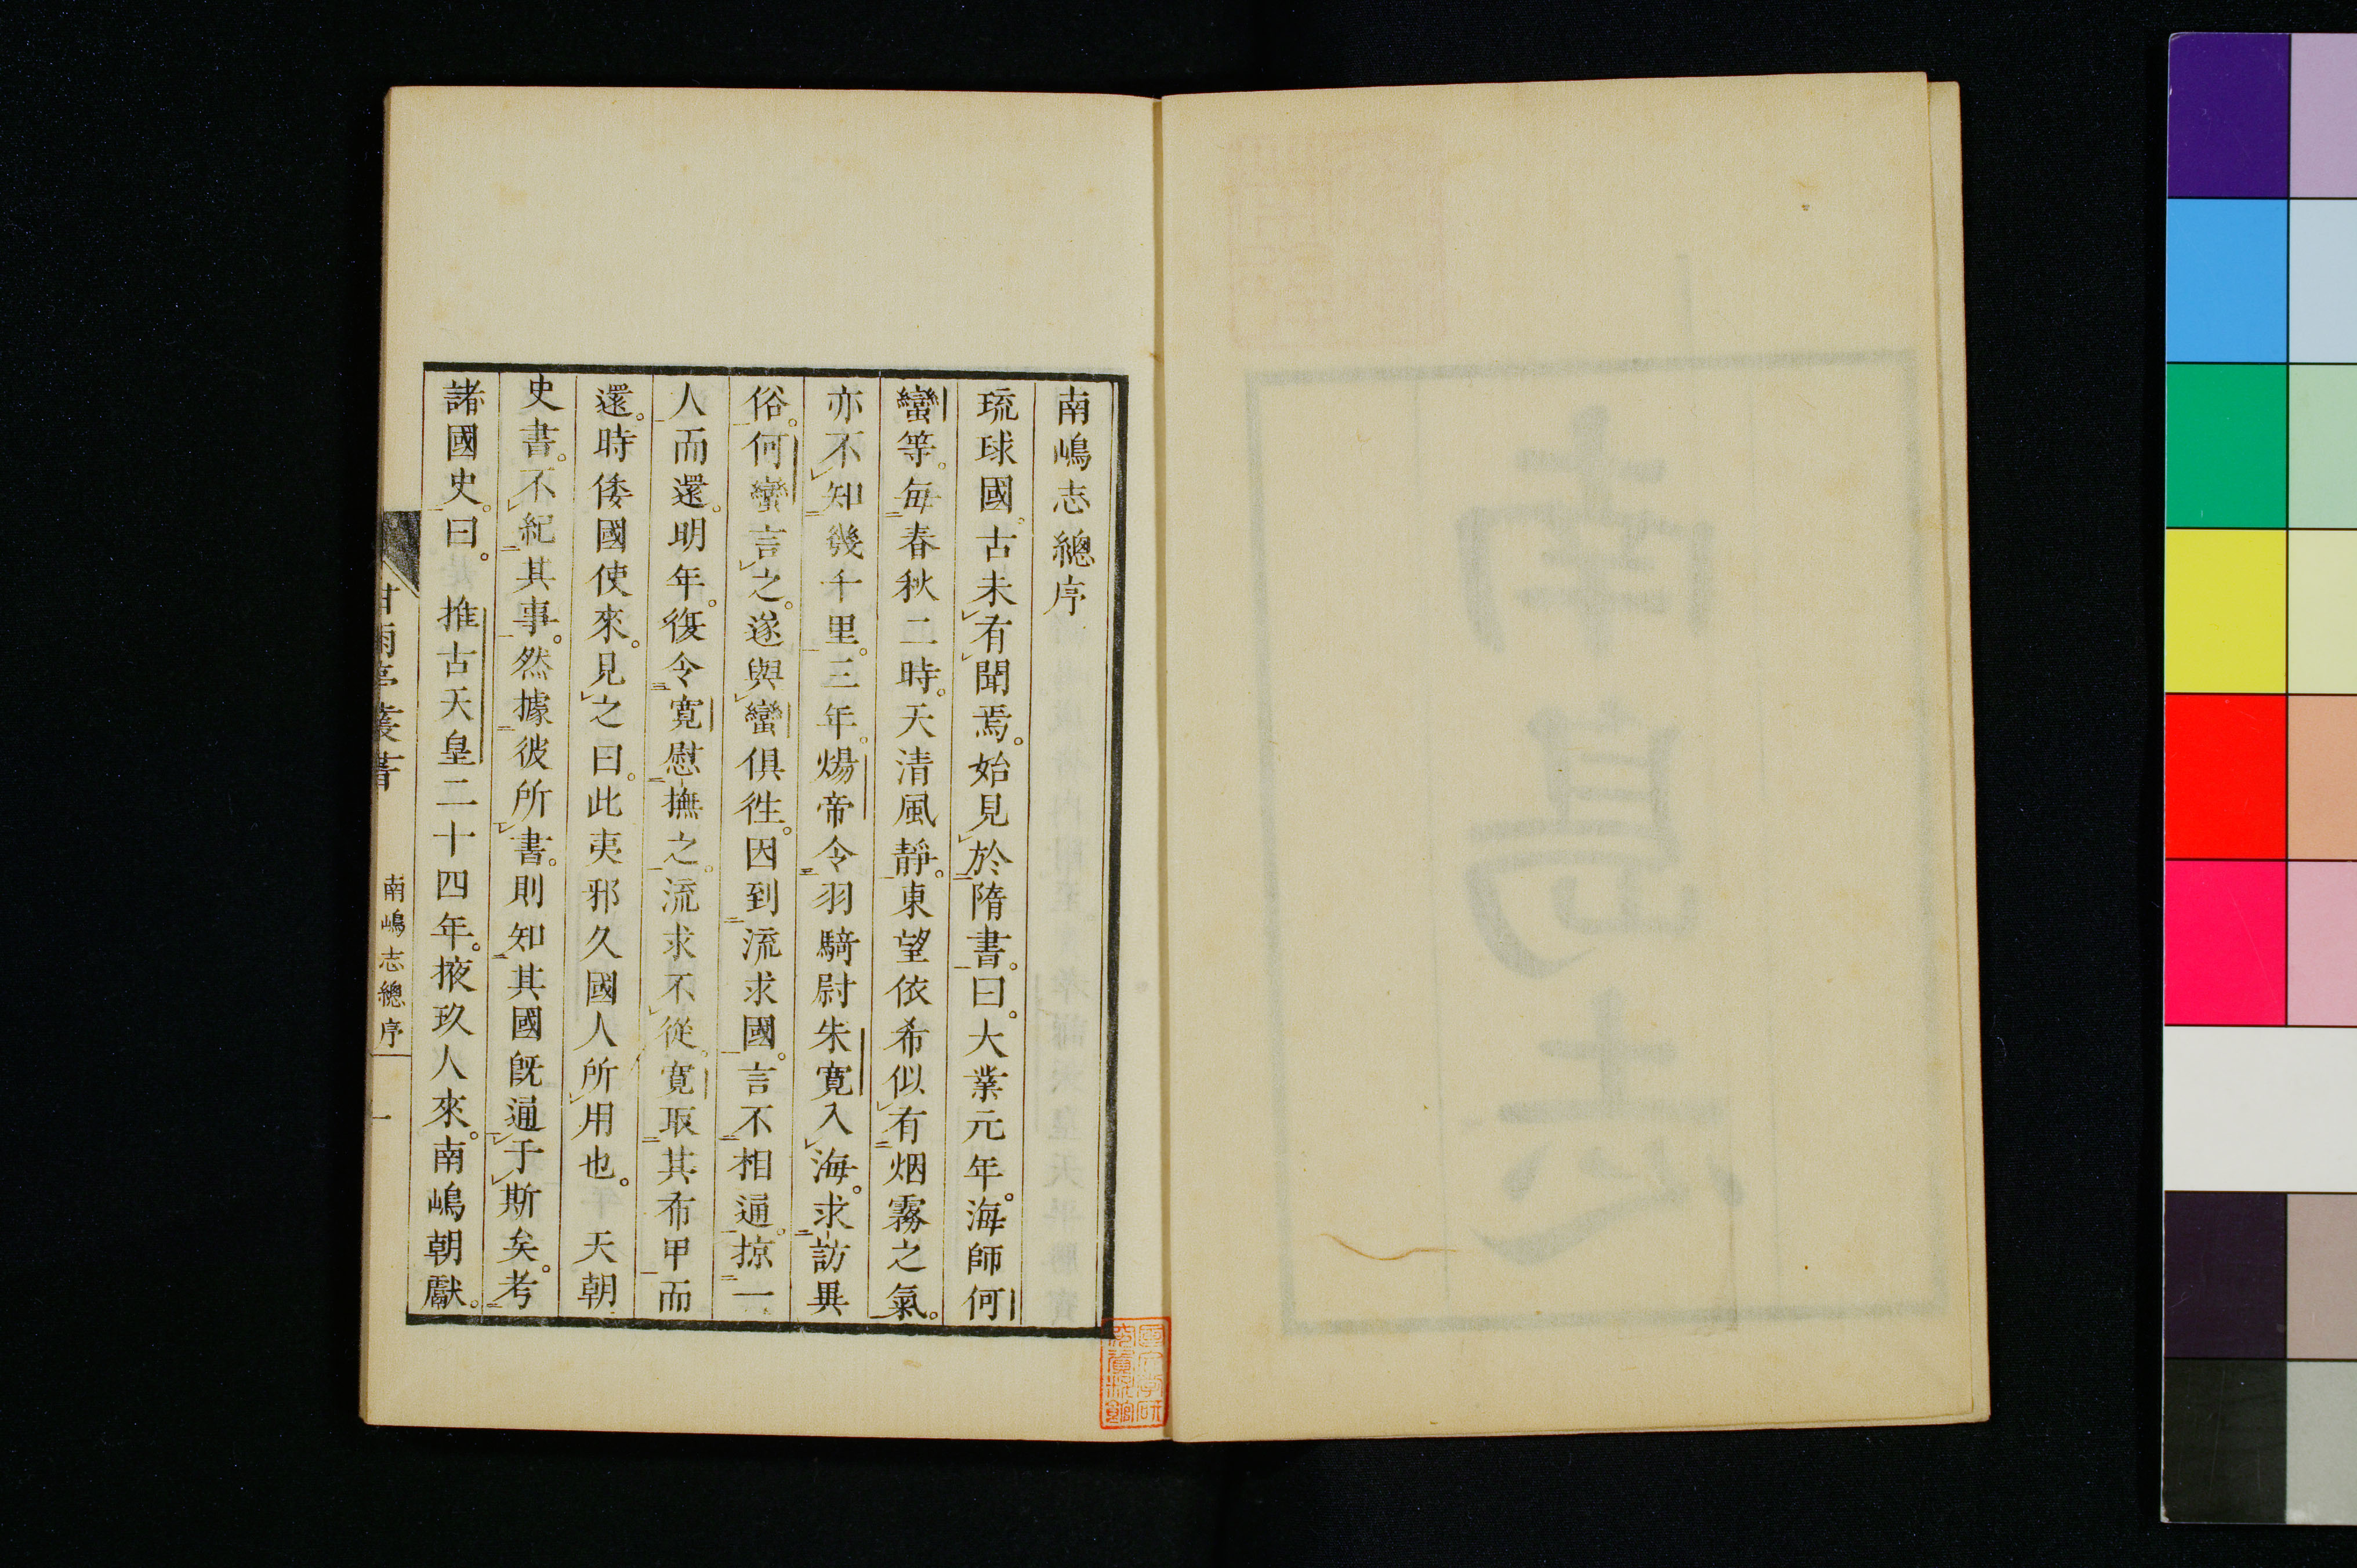 南嶋志總序
琉球國。古未有聞焉。始見於隋書。曰。大業元年。海師何
蠻等。每春秋二時。天清風靜。東望依希似有烟霧之氣。
亦不知幾千里。三年。煬帝令羽騎尉朱寬入海。求訪異
俗。何蠻言之。遂與蠻俱往。因到流求國。言不相通。掠一
人而還。明年。復令寬慰撫之。流求不從。寬取其布甲而
還。時倭國使來。見之曰。此夷邪久國人所用也。 天朝
史書。不紀其事。然據彼所書。則知其國既通于斯矣。考
諸國史。曰。 推古天皇二十四年。掖玖人來。南嶋朝獻。
甘雨亭叢書 南嶋志總序 一